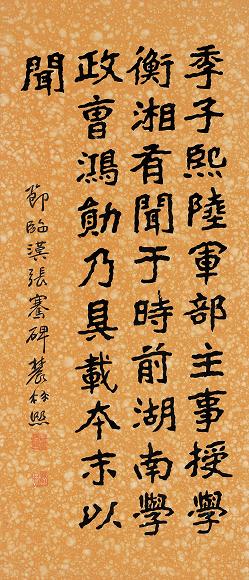 季子熙陸軍部主事授學
衡湘有聞于時前湖南學
政曹鴻勛乃具載本末以
聞
節臨漢張騫碑農林熙